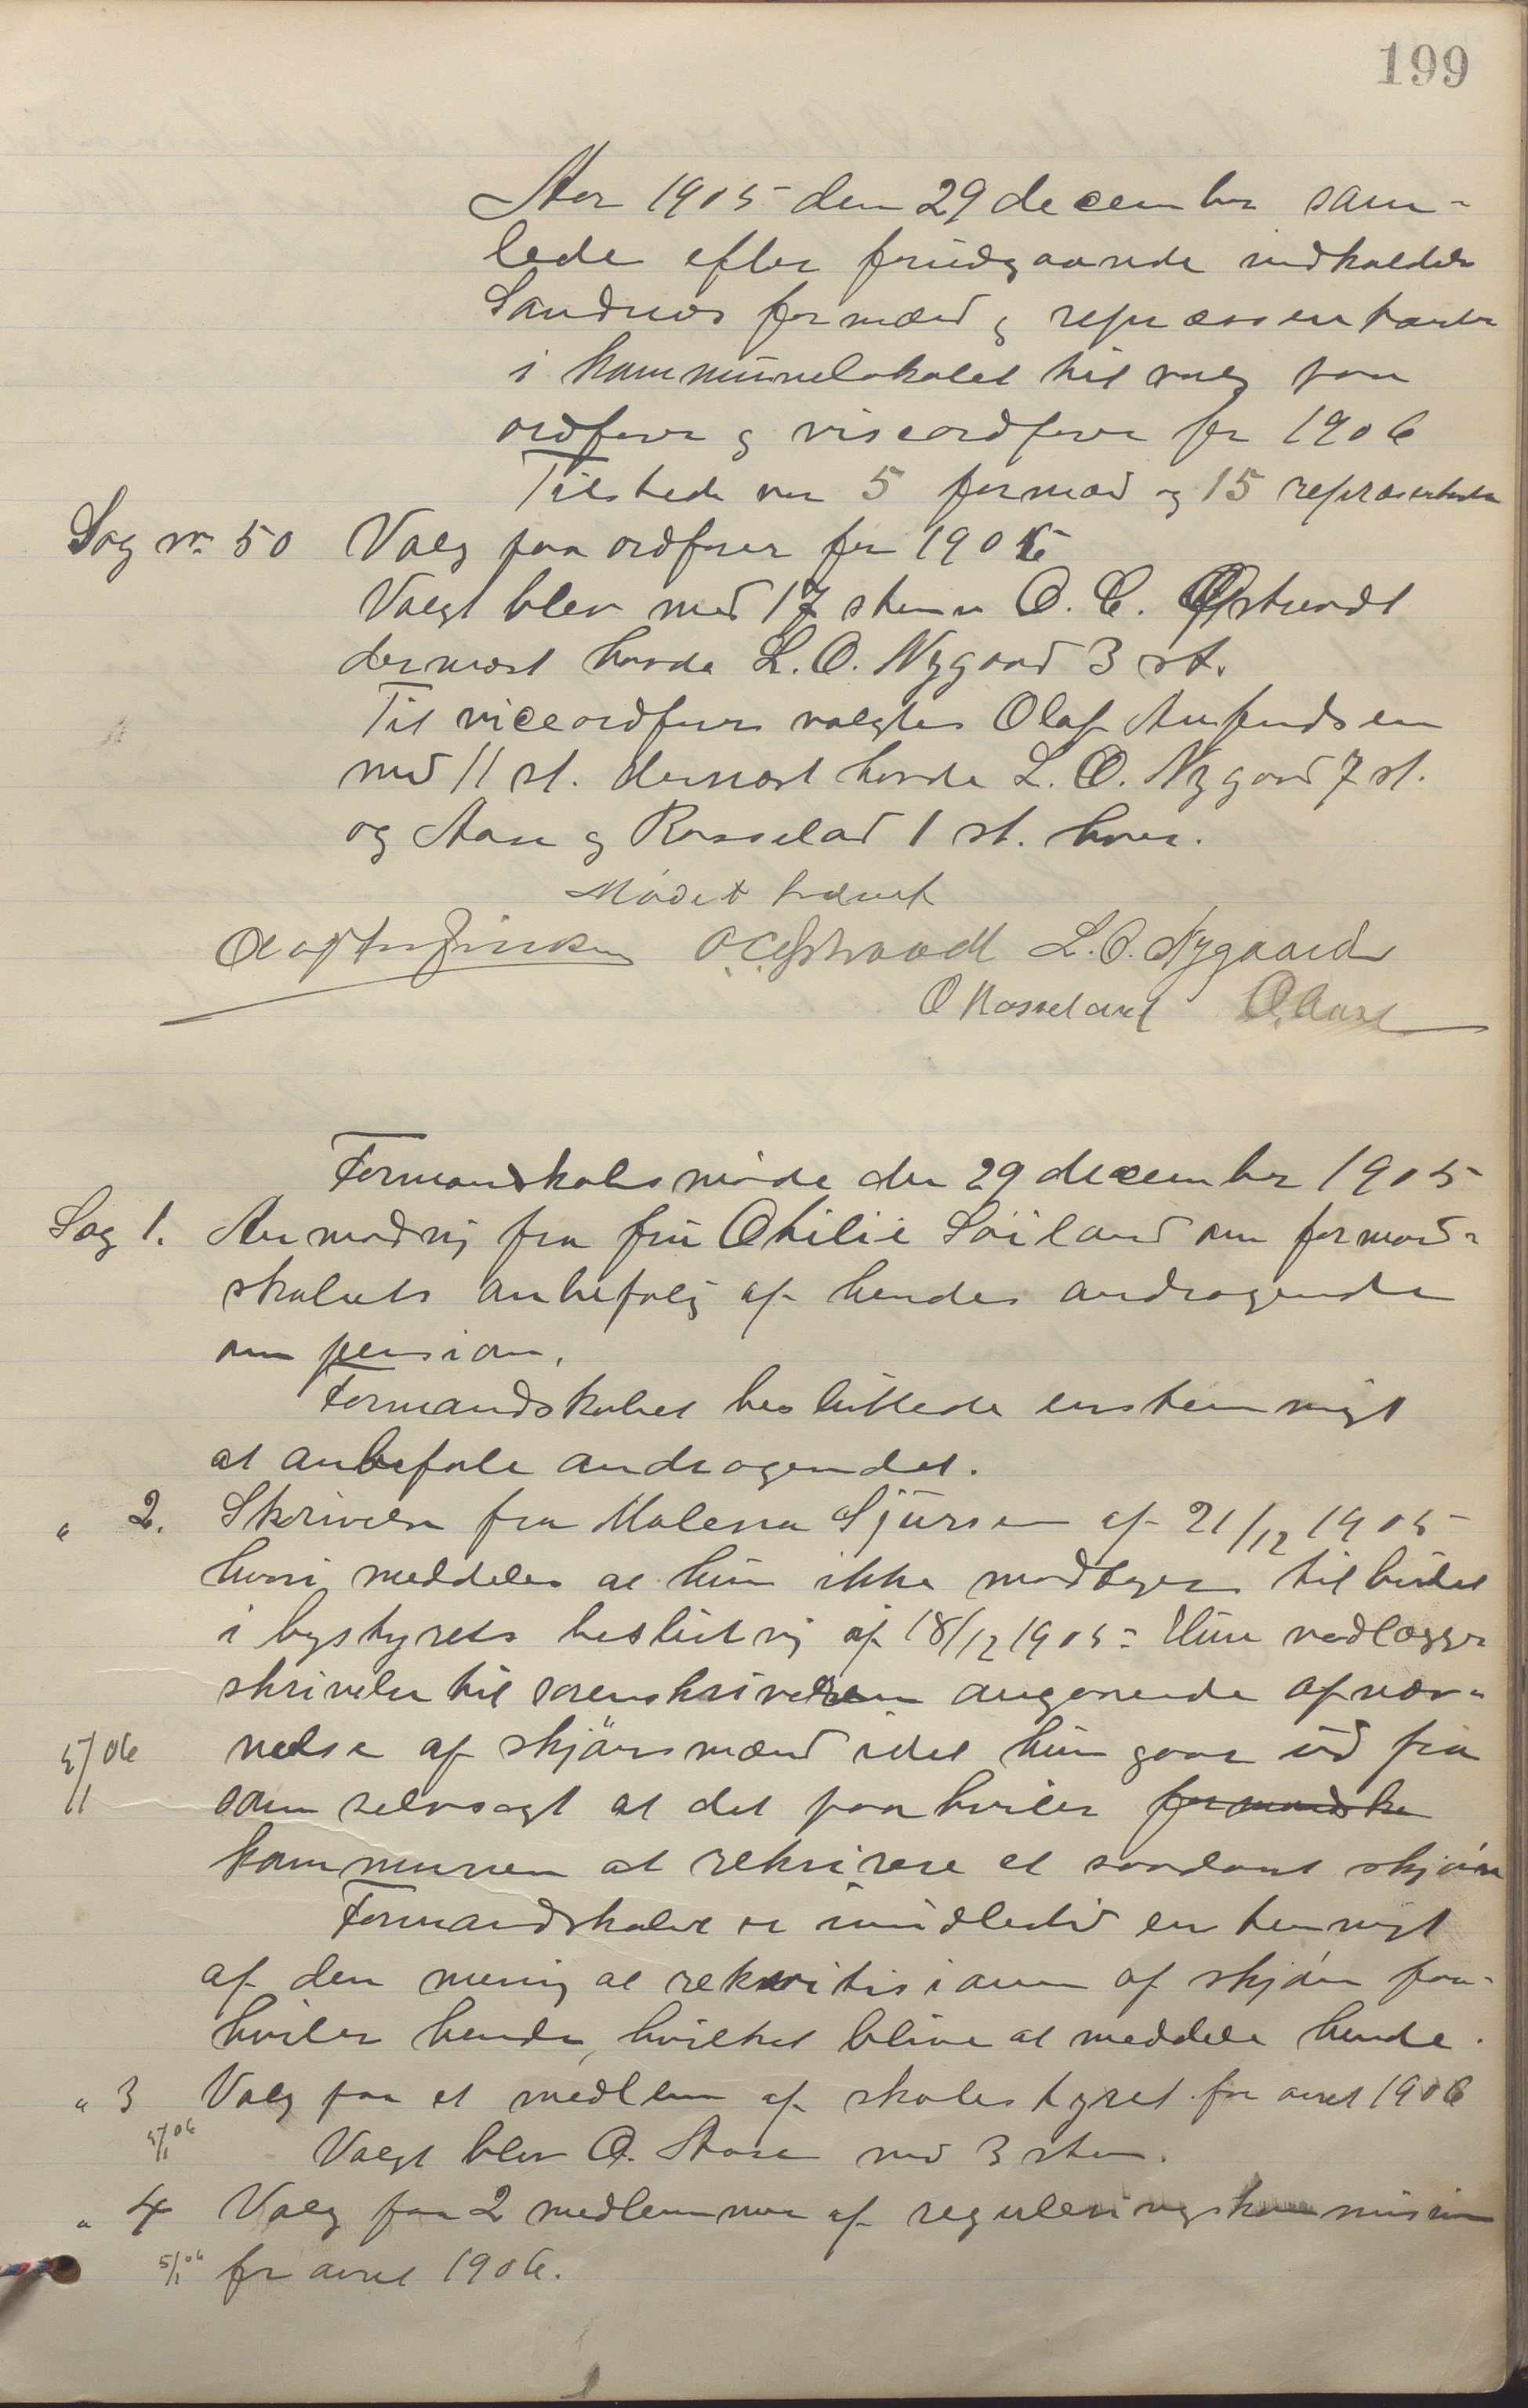 199
Aar 1905 den 29 december sam-
lede efter forudgaaende indkaldelse
Sandnes formænd og repræsentanter
i kommunelokalet til valg paa
ordfører og viseordfører for 1906
Tilstede var 5 formænd og 15 repræsentanter
Sag nr 50 Valg paa ordfører for 1906
Valgt blev med 17 stemmer O. C. Østraadt
dernæst havde L. O. Nygaard 3 st.
Til viceordfører valgtes Olaf Aufindsen
med 11 st. dernæst havde L. O. Nygaard 7 st.
og Aase og Rosseland 1 st. hver.
Mødet hævet
Olaf Aufindsen O. C. Østraadt L. O. Nygaard
O Rosseland O. Aase
Formandskabsmøde den 29 december 1905
Sag 1. Anmodning fra fru Othilie Söiland om formand-
skabets anbefaling af hendes andragende
om pension.
Formandskabet besluttede enstemmigt
at anbefale andragendet.
" 2. Skrivelse fra Malena Sjursen af 21/12 1905
hvori meddeles at hun ikke modtager tilbudet
i bystyrets beslutning af 18/12 1905. Hun vedlægger
skrivelse til sorenskriveren angaaende afnæv-
5/1 06 nelse af skjønsmænd idet hun gaar ud fra
som selvsagt at det paahviler formandska
kommunen at rekvirere et saadant skjøn
Formandskabet er imidlertid enstemmigt
af den mening at rekvisitionen af skjøn paa-
hviler hende, hvilket bliver at meddele hende.
" 3 Valg paa et medlem af skolestyret for aaret 1906
5/1 06 Valgt blev O. Aase med 3 stem.
" 4 Valg paa 2 medlemmer af reguleringskommisionen
5/1 06 for aaret 1906.